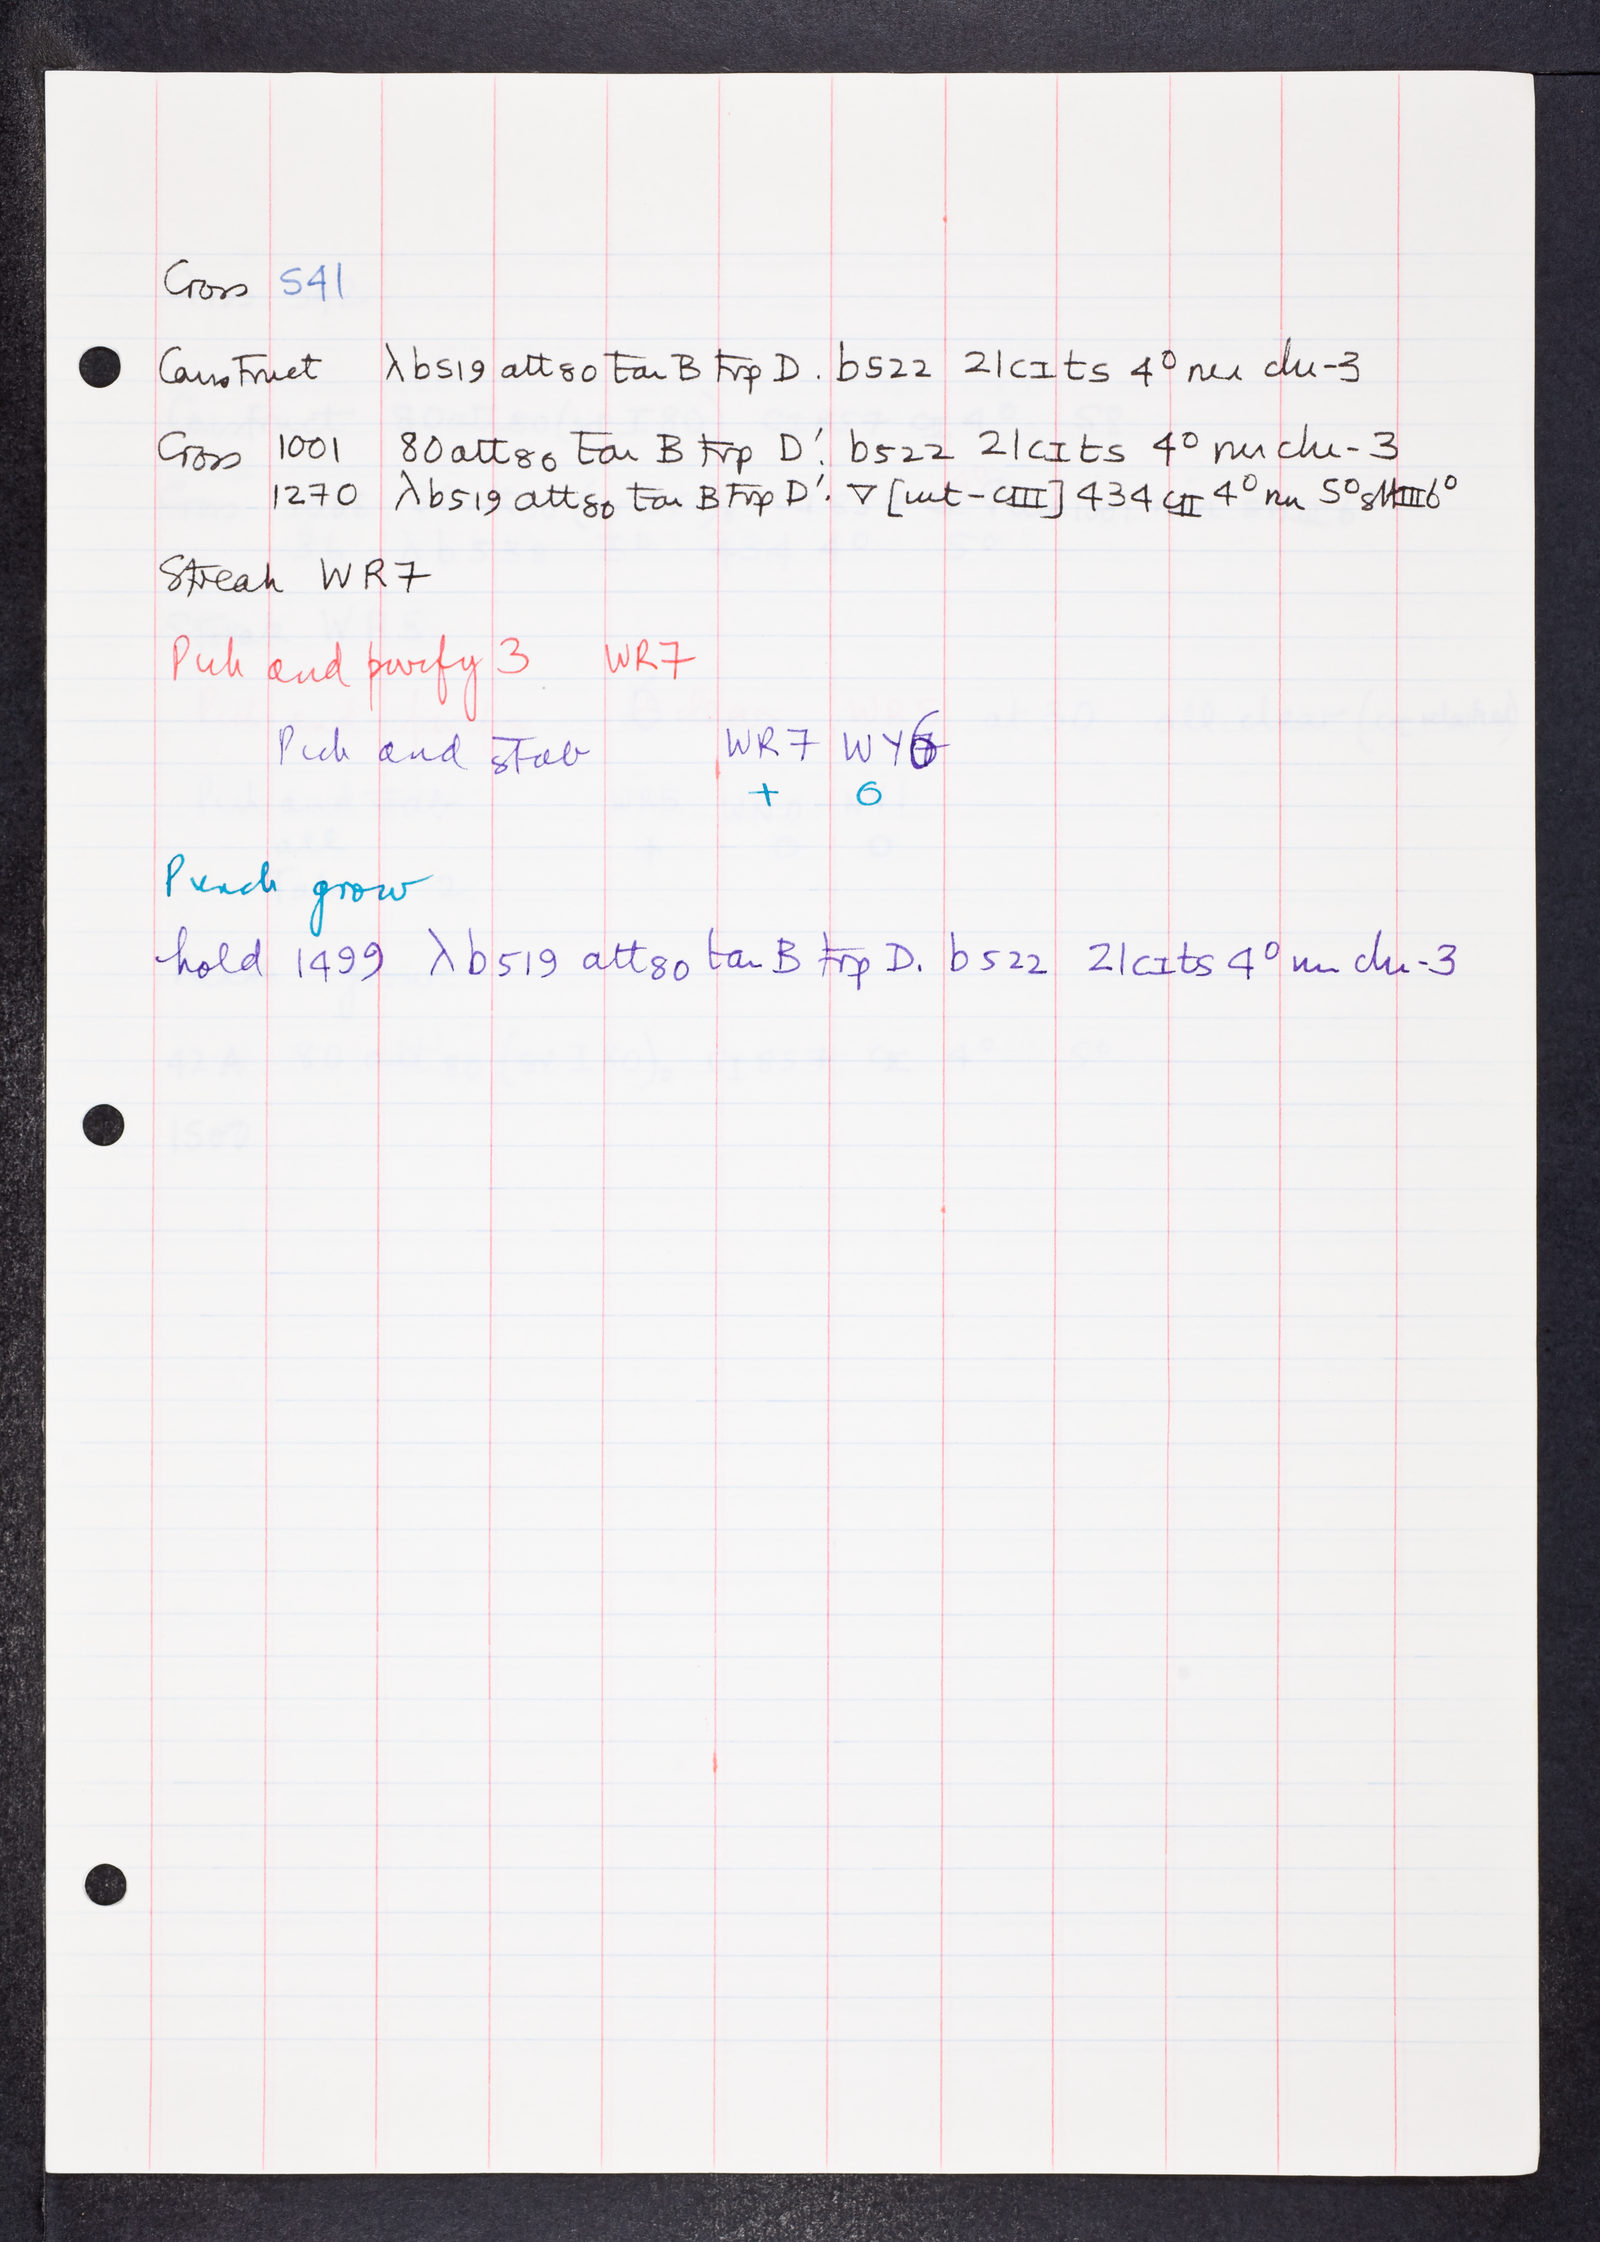 Cross 541
Construct λb519 att80 ton B trp D. b522 21cIts 4⁰ nin chi-3
Cross 1001 80att80 ton B trp D'. b522 21cIts 4⁰ nin chi-3
1270 λb519 att80 ton B trp D'. ▽[int-cIII] 434 cII 4⁰ nin 5⁰ sHIII6⁰
Streak WR7
Pick and purify 3 WR7
Pick and stab WR7 WY6
+ 0
Pick grow
hold 1499 λb519 att80 ton B trp D. b522 21cIts 4⁰ nin chi-3